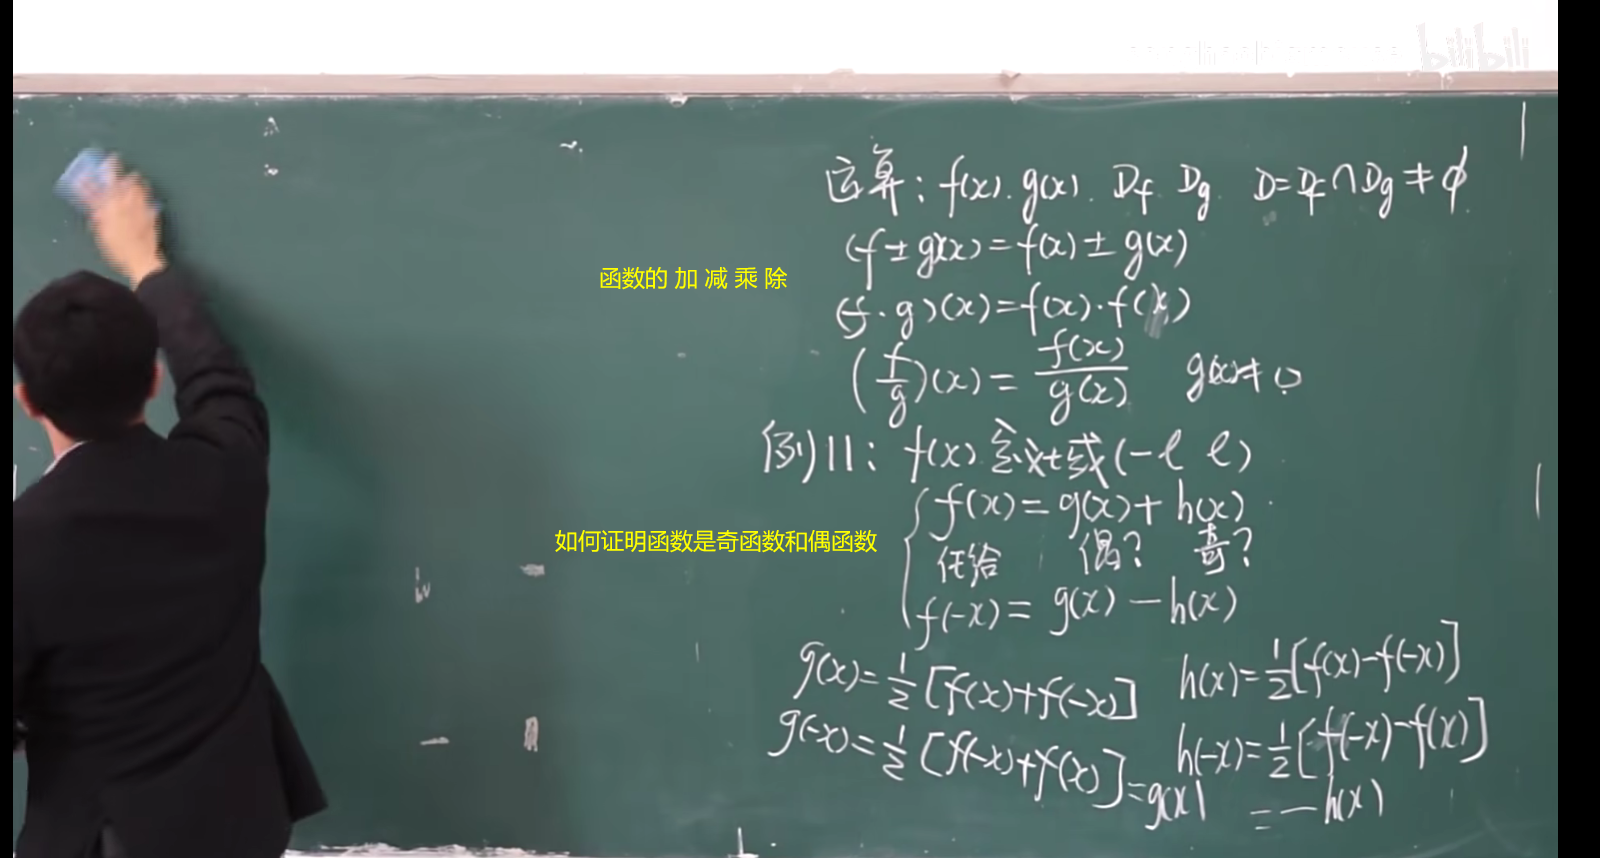 bilibili
运算: f(x). g(x). Df Dg D=Df∩Dg≠ϕ
(f±g)(x)=f(x)±g(x)
函数的 加 减 乘 除
(f·g)(x)=f(x)·f(x)
(f/g)(x)=f(x)/g(x) g(x)≠0
例11: f(x) 定义域(-l l)
f(x)=g(x)+h(x)
如何证明函数是奇函数和偶函数
任给 偶? 奇?
f(-x)=g(x)-h(x)
g(x)=1/2[f(x)+f(-x)] h(x)=1/2[f(x)-f(-x)]
g(-x)=1/2[f(-x)+f(x)]=g(x) h(-x)=1/2[f(-x)-f(x)]
=-h(x)